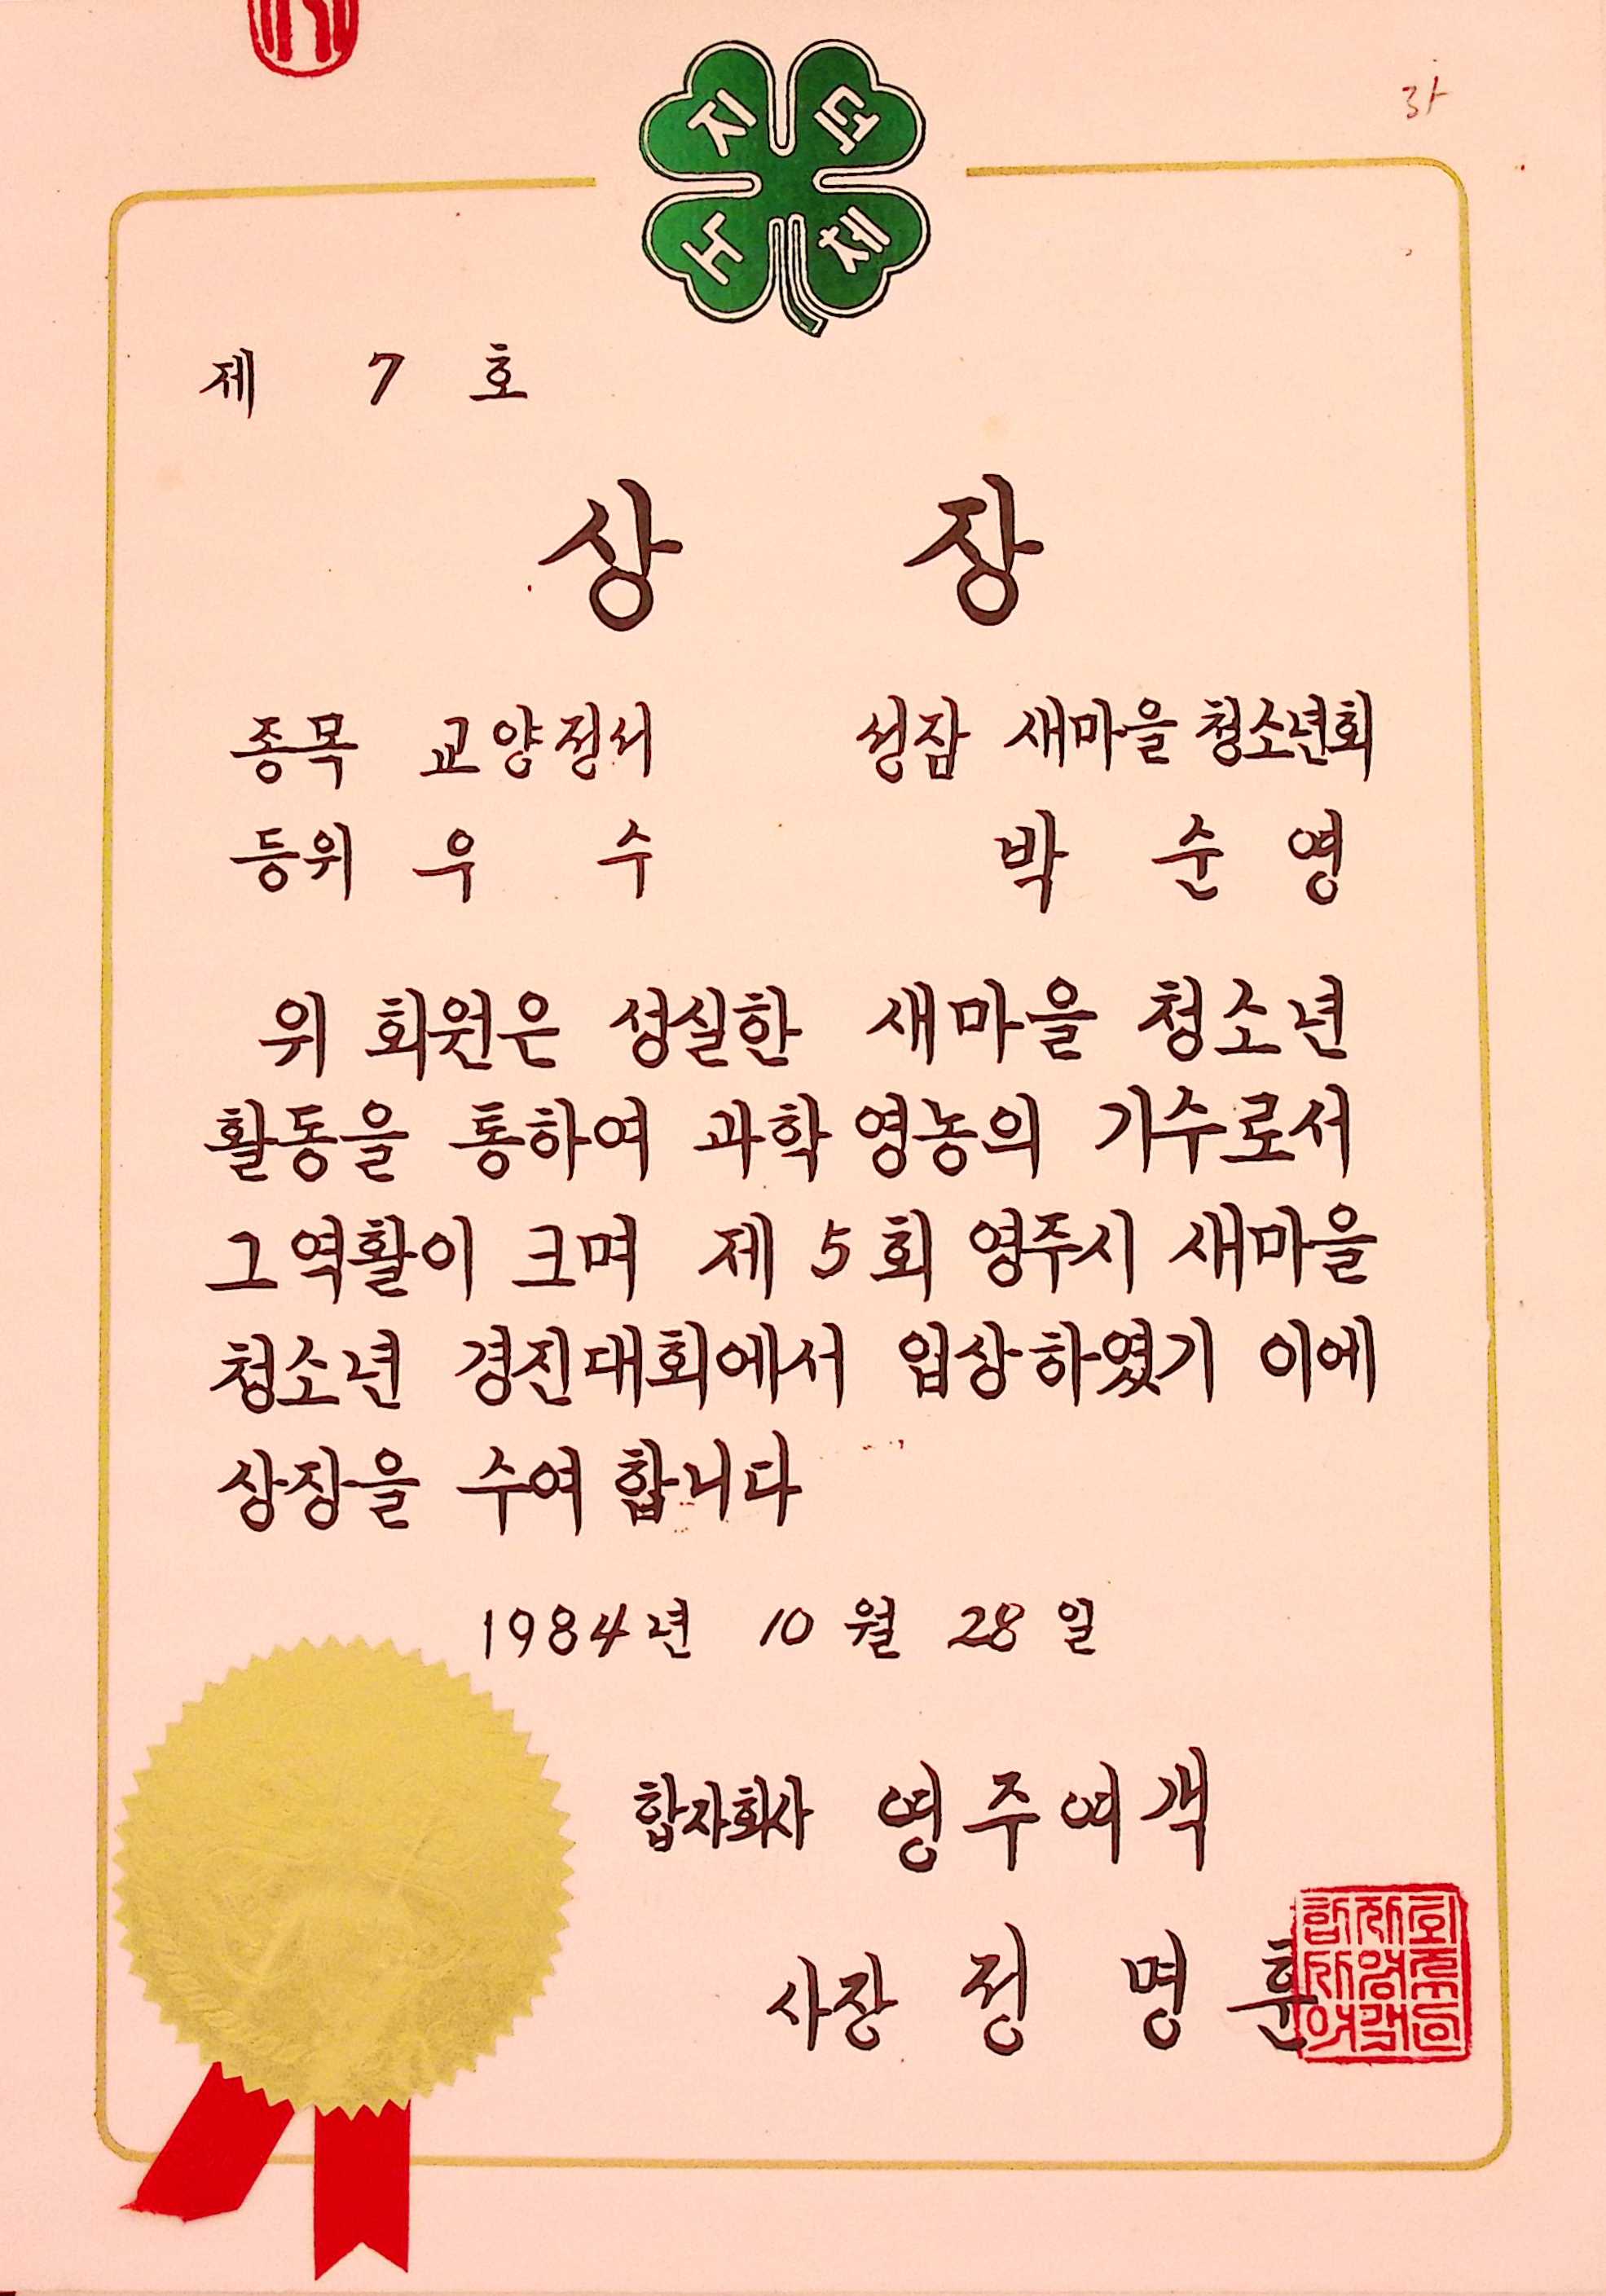 지
덕
노
체
제 7 호
상 장
종목 교양정서 성잠 새마을 청소년회
등위 우 수 박 순 영
위 회원은 성실한 새마을 청소년
활동을 통하여 과학 영농의 기수로서
그 역활이 크며 제 5 회 영주시 새마을
청소년 경진대회에서 입상하였기 이에
상장을 수여 합니다
1984년 10 월 28 일
합자회사 영주여객
사장 정 명 훈